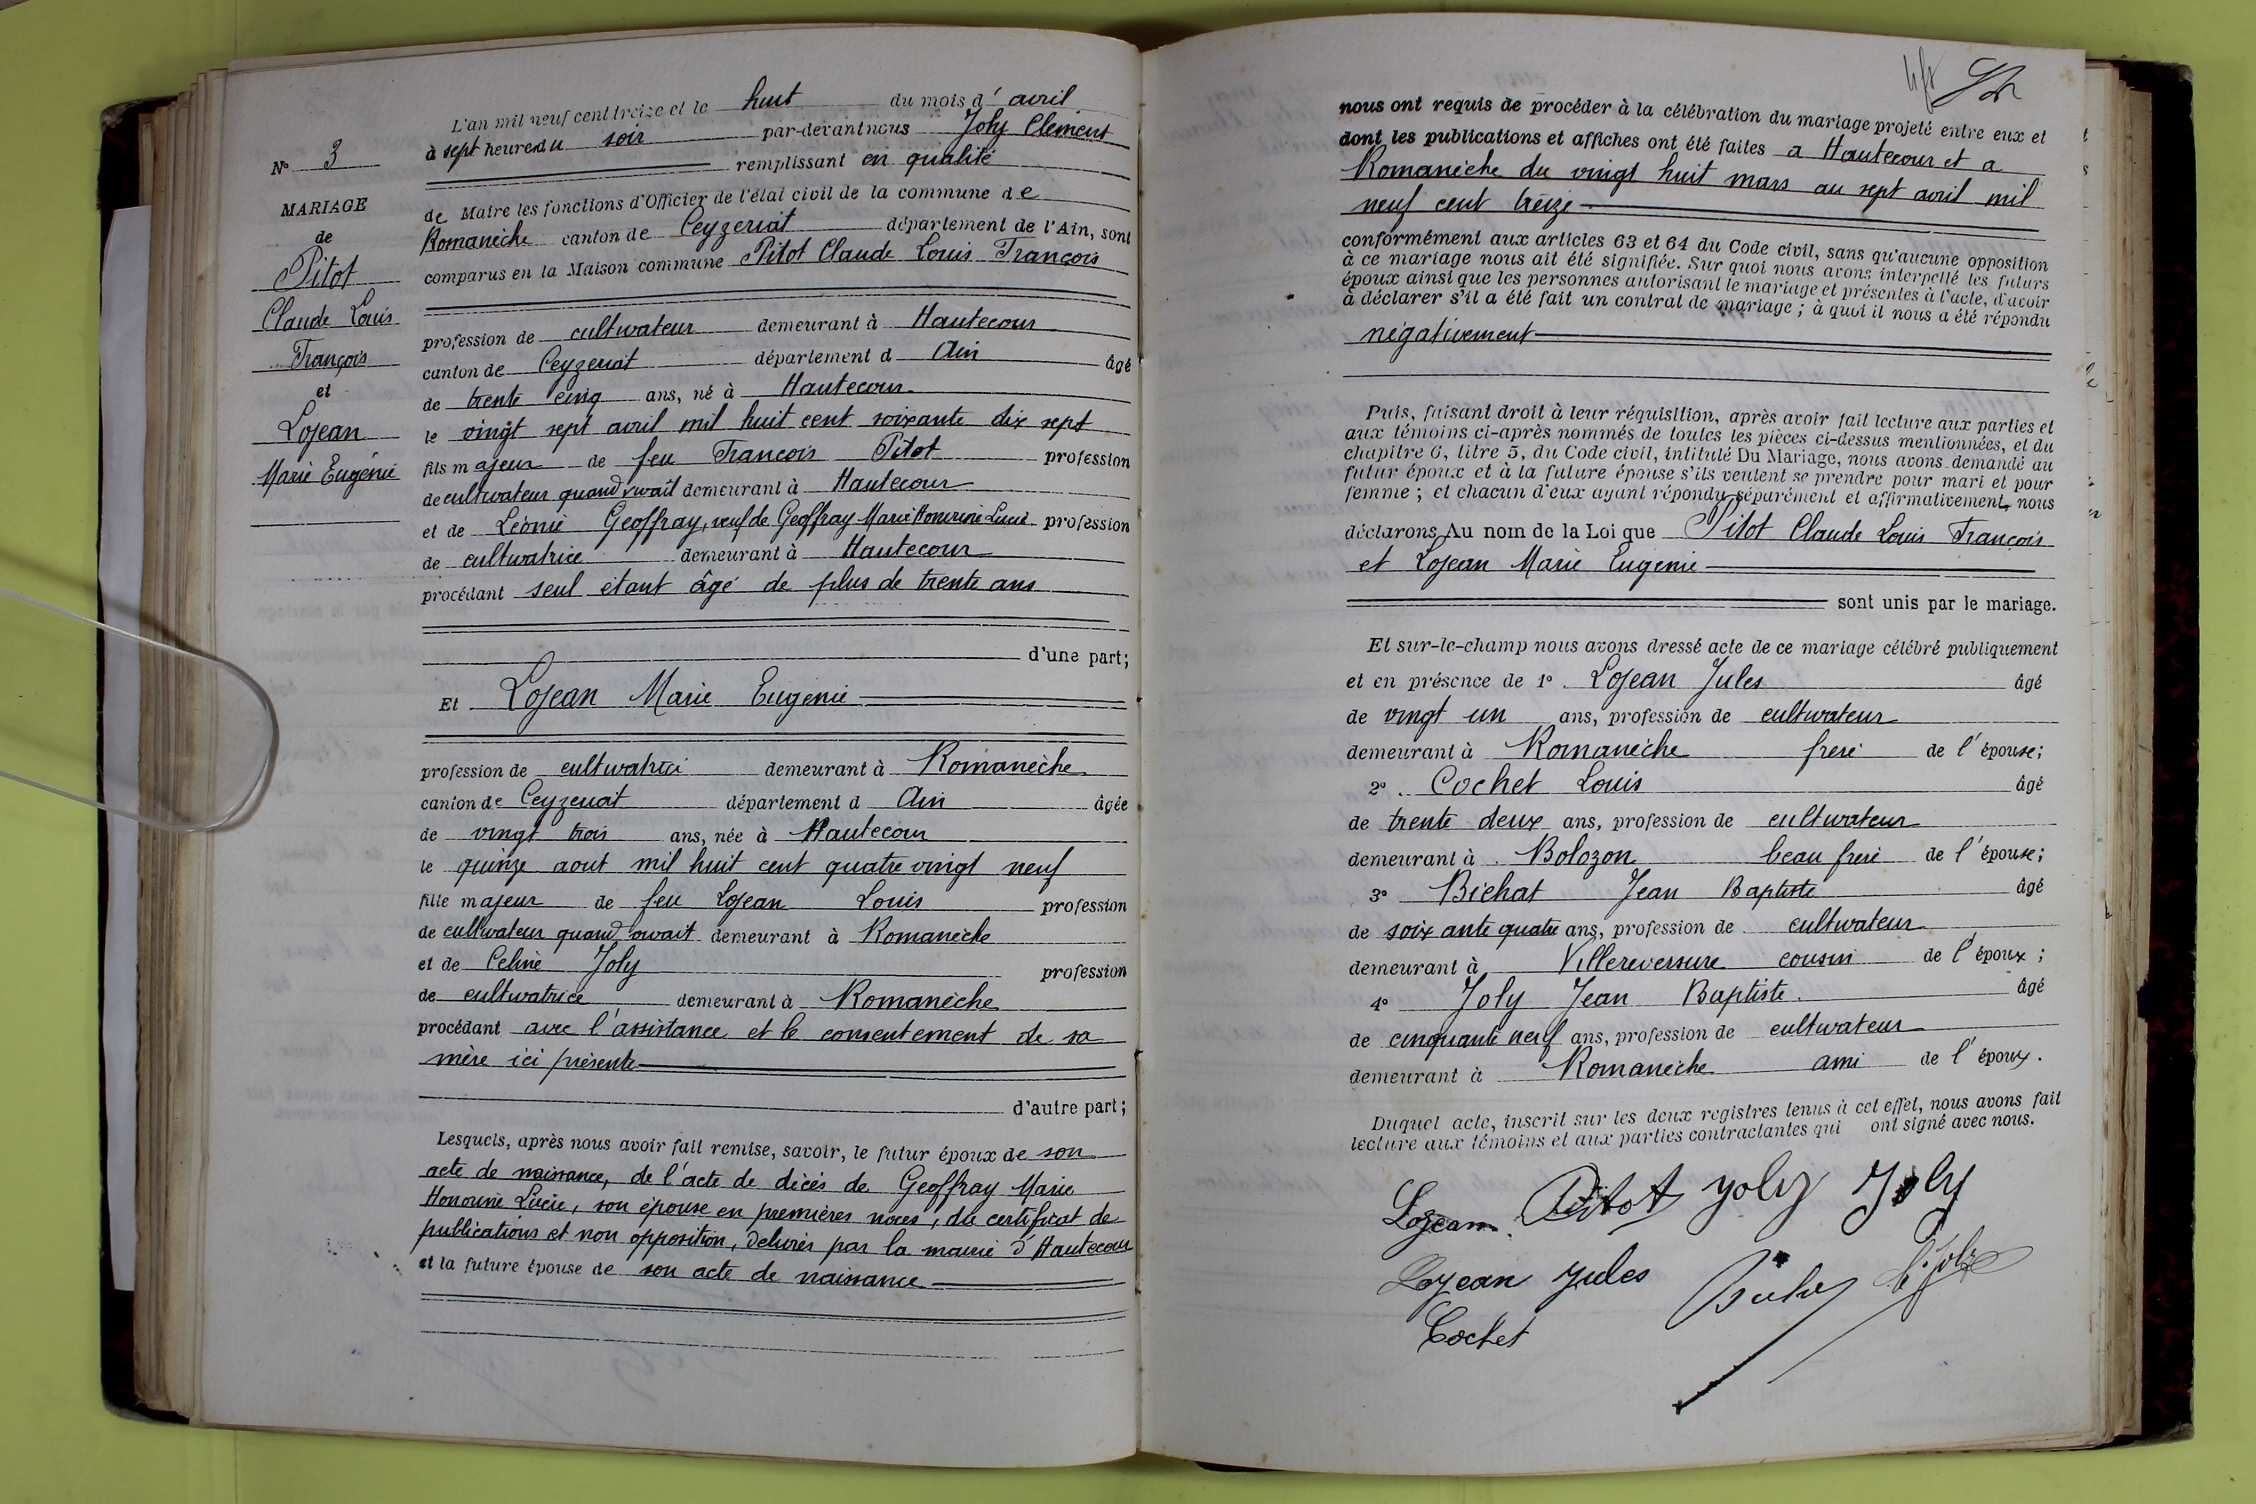 N° 3
MARIAGE
de
Pitot
Claude Louis
François
et
Lojean
Marie Eugénie
L'an mil neuf cent treize et le huit du mois d'avril
à sept heures du soir par-devant nous Joly Clement
remplissant en qualité
de Maire les fonctions d'Officier de l'état civil de la commune de
Romanèche canton de Ceyzeriat département de l'Ain, sont
comparus en la Maison commune Pitot Claude Louis François
profession de cultivateur demeurant à Hautecour
canton de Ceyzeriat département d Ain âgé
de trente cinq ans, né à Hautecour
le vingt sept avril mil huit cent soixante dix sept
fils majeur de feu François Pitot profession
de cultivateur quand vivait demeurant à Hautecour
et de Léonie Geoffray, veuf de Geoffray Marie Honorine Lucie profession
de cultivatrice demeurant à Hautecour
procédant seul étant âgé de plus de trente ans
d'une part;
Et Lojean Marie Eugénie
profession de cultivatrice demeurant à Romanèche
canton de Ceyzeriat département d Ain âgée
de vingt trois ans, née à Hautecour
le quinze aout mil huit cent quatre vingt neuf
fille majeur de feu Lojean Louis profession
de cultivateur quand vivait demeurant à Romanèche
et de Celine Joly profession
de cultivatrice demeurant à Romanèche
procédant avec l'assistance et le consentement de sa
mère ici présente
d'autre part;
Lesquels, après nous avoir fait remise, savoir, le futur époux de son
acte de naissance, de l'acte de décès de Geoffray Marie
Honorine Lucie, son épouse en premières noces, du certificat de
publications et non opposition, delivrés par la mairie d'Hautecour
et la future épouse de son acte de naissance
nous ont requis de procéder à la célébration du mariage projeté entre eux et
dont les publications et affiches ont été faites a Hautecour et a
Romanèche du vingt huit mars au sept avril mil
neuf cent treize
conformément aux articles 63 et 64 du Code civil, sans qu'aucune opposition
à ce mariage nous ait été signifiée. Sur quoi nous avons interpellé les futurs
époux ainsi que les personnes autorisant le mariage et présentes à l'acte, d'avoir
à déclarer s'il a été fait un contrat de mariage; à quoi il nous a été répondu
négativement
Puis, faisant droit à leur réquisition, après avoir fait lecture aux parties et
aux témoins ci-après nommés de toutes les pièces ci-dessus mentionnées, et du
chapitre 6, titre 5, du Code civil, intitulé Du Mariage, nous avons demandé au
futur époux et à la future épouse s'ils veulent se prendre pour mari et pour
femme; et chacun d'eux ayant répondu séparément et affirmativement, nous
déclarons Au nom de la Loi que Pitot Claude Louis François
et Lojean Marie Eugénie
sont unis par le mariage.
Et sur-le-champ nous avons dressé acte de ce mariage célébré publiquement
et en présence de 1° Lojean Jules âgé
de vingt un ans, profession de cultivateur
demeurant à Romanèche frere de l'épouse;
2° Cochet Louis âgé
de trente deux ans, profession de cultivateur
demeurant à Bolozon beau frere de l'épouse;
3° Bichat Jean Baptiste âgé
de soixante quatre ans, profession de cultivateur
demeurant à Villereversure cousin de l'époux;
4° Joly Jean Baptiste. âgé
de cinquante neuf ans, profession de cultivateur
demeurant à Romanèche ami de l'époux.
Duquel acte, inscrit sur les deux registres tenus à cet effet, nous avons fait
lecture aux témoins et aux parties contractantes qui ont signé avec nous.
Lojean Pitot Joly Joly
Lojean Jules
Cochet